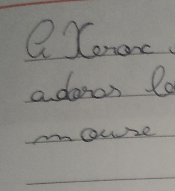 A Xerox
adoros lo
mouse